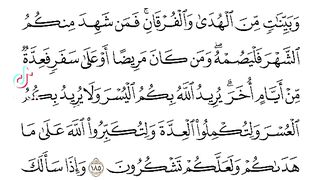 وَبَيِّنَٰتٍ مِّنَ ٱلْهُدَىٰ وَٱلْفُرْقَانِ ۚ فَمَن شَهِدَ مِنكُمُ
ٱلشَّهْرَ فَلْيَصُمْهُ ۖ وَمَن كَانَ مَرِيضًا أَوْ عَلَىٰ سَفَرٍ فَعِدَّةٌ
مِّنْ أَيَّامٍ أُخَرَ ۗ يُرِيدُ ٱللَّهُ بِكُمُ ٱلْيُسْرَ وَلَا يُرِيدُ بِكُمُ
ٱلْعُسْرَ وَلِتُكْمِلُوا۟ ٱلْعِدَّةَ وَلِتُكَبِّرُوا۟ ٱللَّهَ عَلَىٰ مَا
هَدَىٰكُمْ وَلَعَلَّكُمْ تَشْكُرُونَ ١٨٥ وَإِذَا سَأَلَكَ